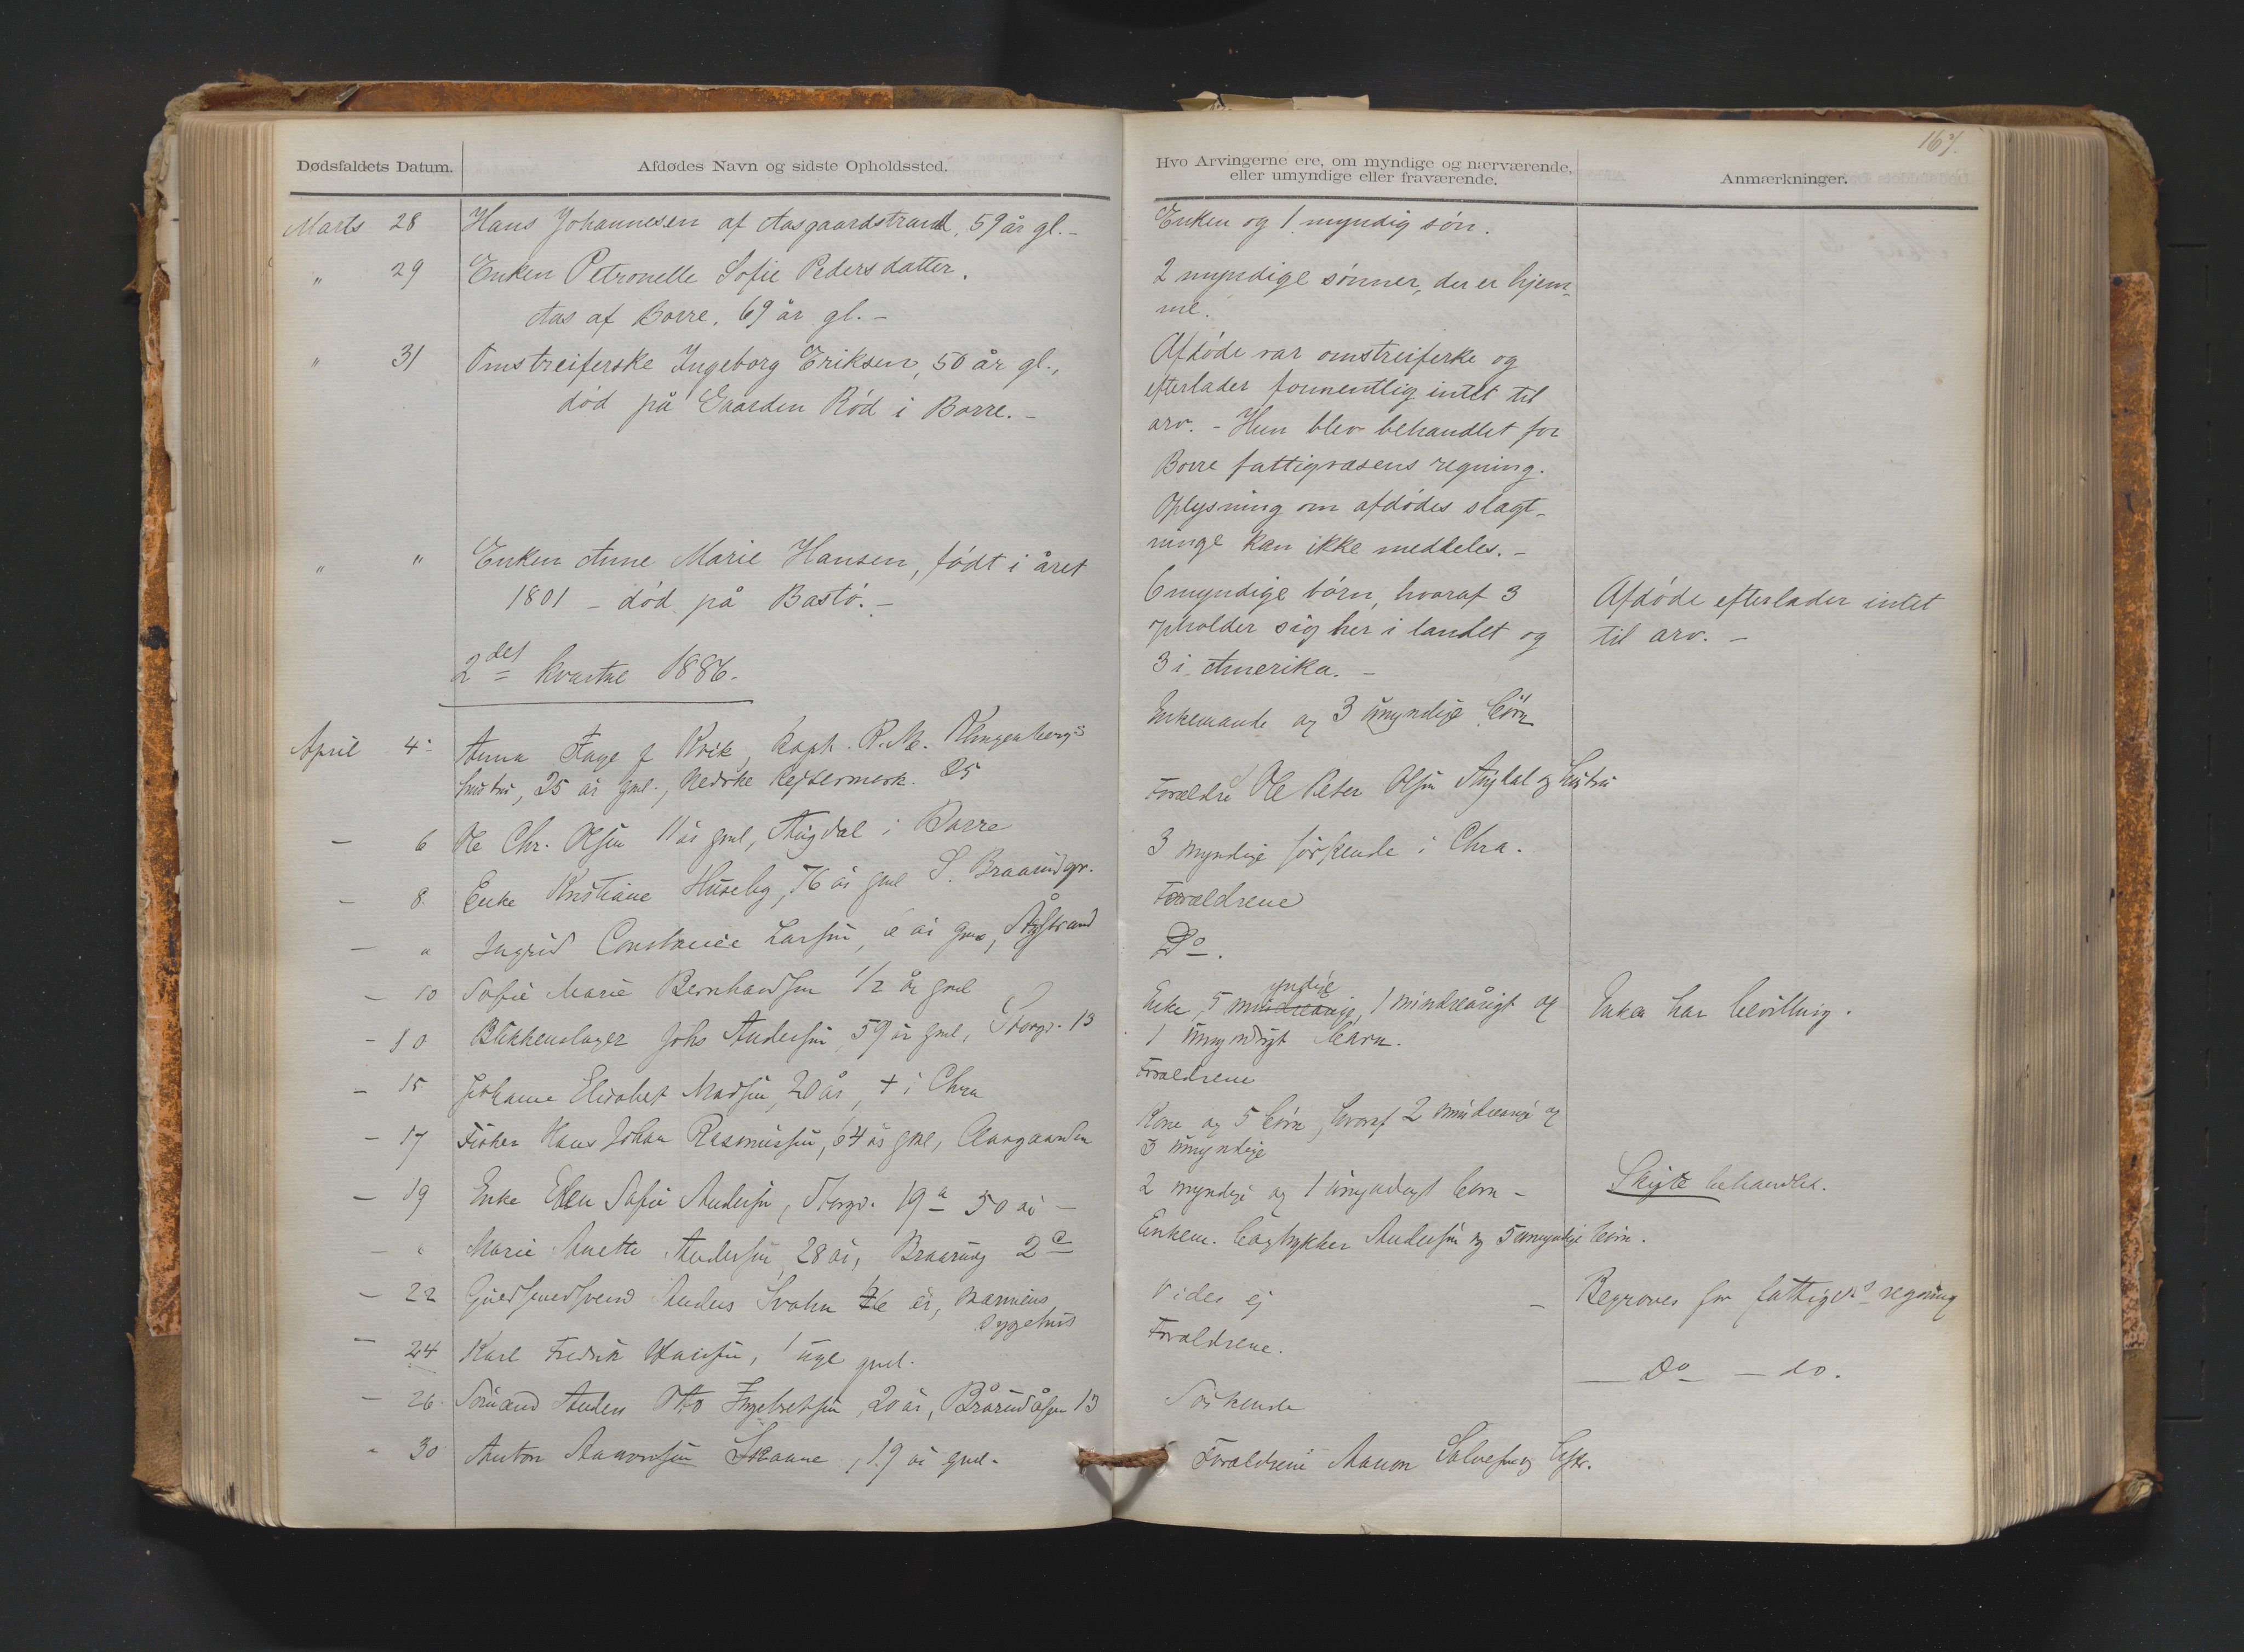 167.
Dødsfaldets Datum.
Afdødes Navn og sidste Opholdssted.
Marts 28 Hans Johannesen af Aasgaardstrand, 59 år gl. -
" 29 Enken Petronelle Sofie Pedersdatter.
Aas af Borre, 69 år gl. -
" 31 Omstreiferske Ingeborg Eriksen, 50 år gl.,
død på Gaarden Rød i Borre. -
" " Enken Anne Marie Hansen, født i året
1801 - død på Bastø. -
2det kvartal 1886.
April 4 Anna Faye f Kvik, Kapt. R. M. Klingenbergs
hustru, 25 år gml., Nedre Keisermark. 25
- 6 Ole Chr. Olsen 11 år gml, Augdal i Borre
- 8. Enke Kristiane Huseby, 76 år gml S. Braarudgr.
- " Ingrid Constancie Larsen, år gml,
- 10 Sofie Marie Bernhardsen 1/2 år gml
- 10 Blikkenslager Johs Andersen, 59 år gml, Storgd. 13
- 15 Johanne Elisabet Madsen, 20 år, † i Chra
- 17 Fisker Hans Johan Rasmussen, 64 år gml, Aargaarden
- 19 Enke Ellen Sofie Andersen, Storgd. 19a 50 år -
- " Marie Anette Andersen 28 år, Braarudg 2c
- 22 Guldsmedsvend Anders Svahn år, Marinens
Sygehus
- 24 Karl Fredrik Hansen, 1 uge gml.
- 26. Sømand Anders Otto Ingebretsen, 20 år, Brårudåsen 13
" 30 Anton Aaronsen Skaane, 19 år gml.
Hvo Arvingerne ere, om myndige og nærværende,
eller umyndige eller fraværende.
Anmærkninger.
Enken og 1 myndig søn.
2 myndige sønner, der er hjem-
me.
Afdøde var omstreiferke og
efterlader formentlig intet til
arv. - Hun blev behandlet for
Borre fattigvæsens regning.
Oplysning om afdødes slægt-
ninge kan ikke meddeles. -
6 myndige børn, hvoraf 3
opholder sig her i landet og
3 i Amerika. -
Afdøde efterlader intet
til arv. -
Enkemand og 3 umyndige børn
Forældre Ole Peter Olsen Augdal og hustru
3 myndige søskende i Chra.
Forældrene
Do.
yndige
Enke, 5 mindreårige, 1 mindreårigt og
1 umyndigt barn.
Enken har bevilling.
Forældrene
Kone og 5 børn, hvoraf 2 mindreårige og
3 umyndige
2 myndige og 1 umyndigt barn -
Skifte behandles.
Enkem. bogtrykker Andersen og 5 umyndige børn.
Vides ej -
Begraves for fattigv. regning
Forældrene.
- Do - do.
Søskende
Forældrene Aaron Salvesen og hstr.